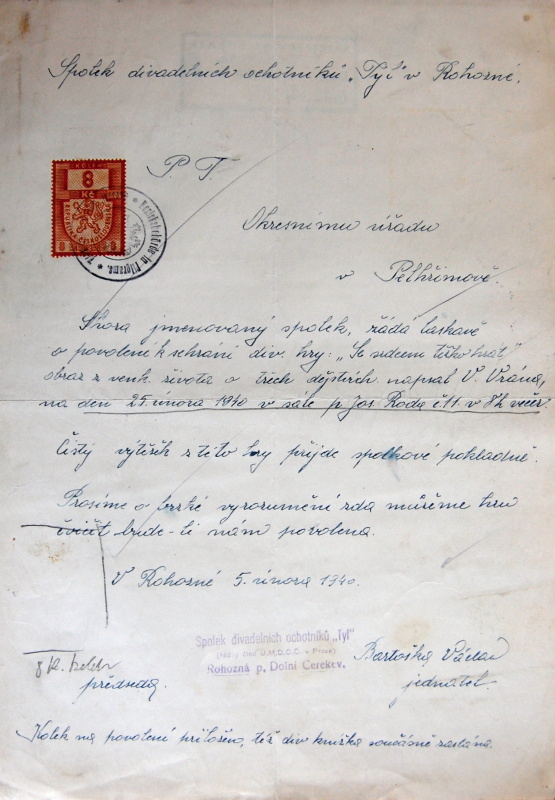 Spolek divadelních ochotníků „Tyl" v Rohozné.
P. T.
KOLEK
8
Kč
REPUBLIKA ČESKOSLOVENSKÁ
8 8
Bezirksbehörde in Pilgrams.
Okresnímu úřadu
v Pelhřimově.
Shora jmenovaný spolek, žádá laskavě
o povolení k sehrání div. hry: „Se srdcem těžko hrát,"
obraz z venk. života o třech dějstvích napsal V. Vrána,
na den 25. února 1940 v sále p. Jos. Roda č. 11. v 8h. večer.
Čistý výtěžek z této hry přijde spolkové pokladně.
Prosíme o brzké vyrozumění zda můžeme hru
cvičit bude-li nám povolena.
V Rohozné 5. února 1940.
Spolek divadelních ochotníků „Tyl"
(řádný člen Ú.M.D.O.Č. v Praze)
Rohozná p. Dolní Cerekev.
Bartoška Václav
8 K. kolek
předseda.
jednatel.
Kolek na povolení přiložen, též div. knížka současně zaslána.